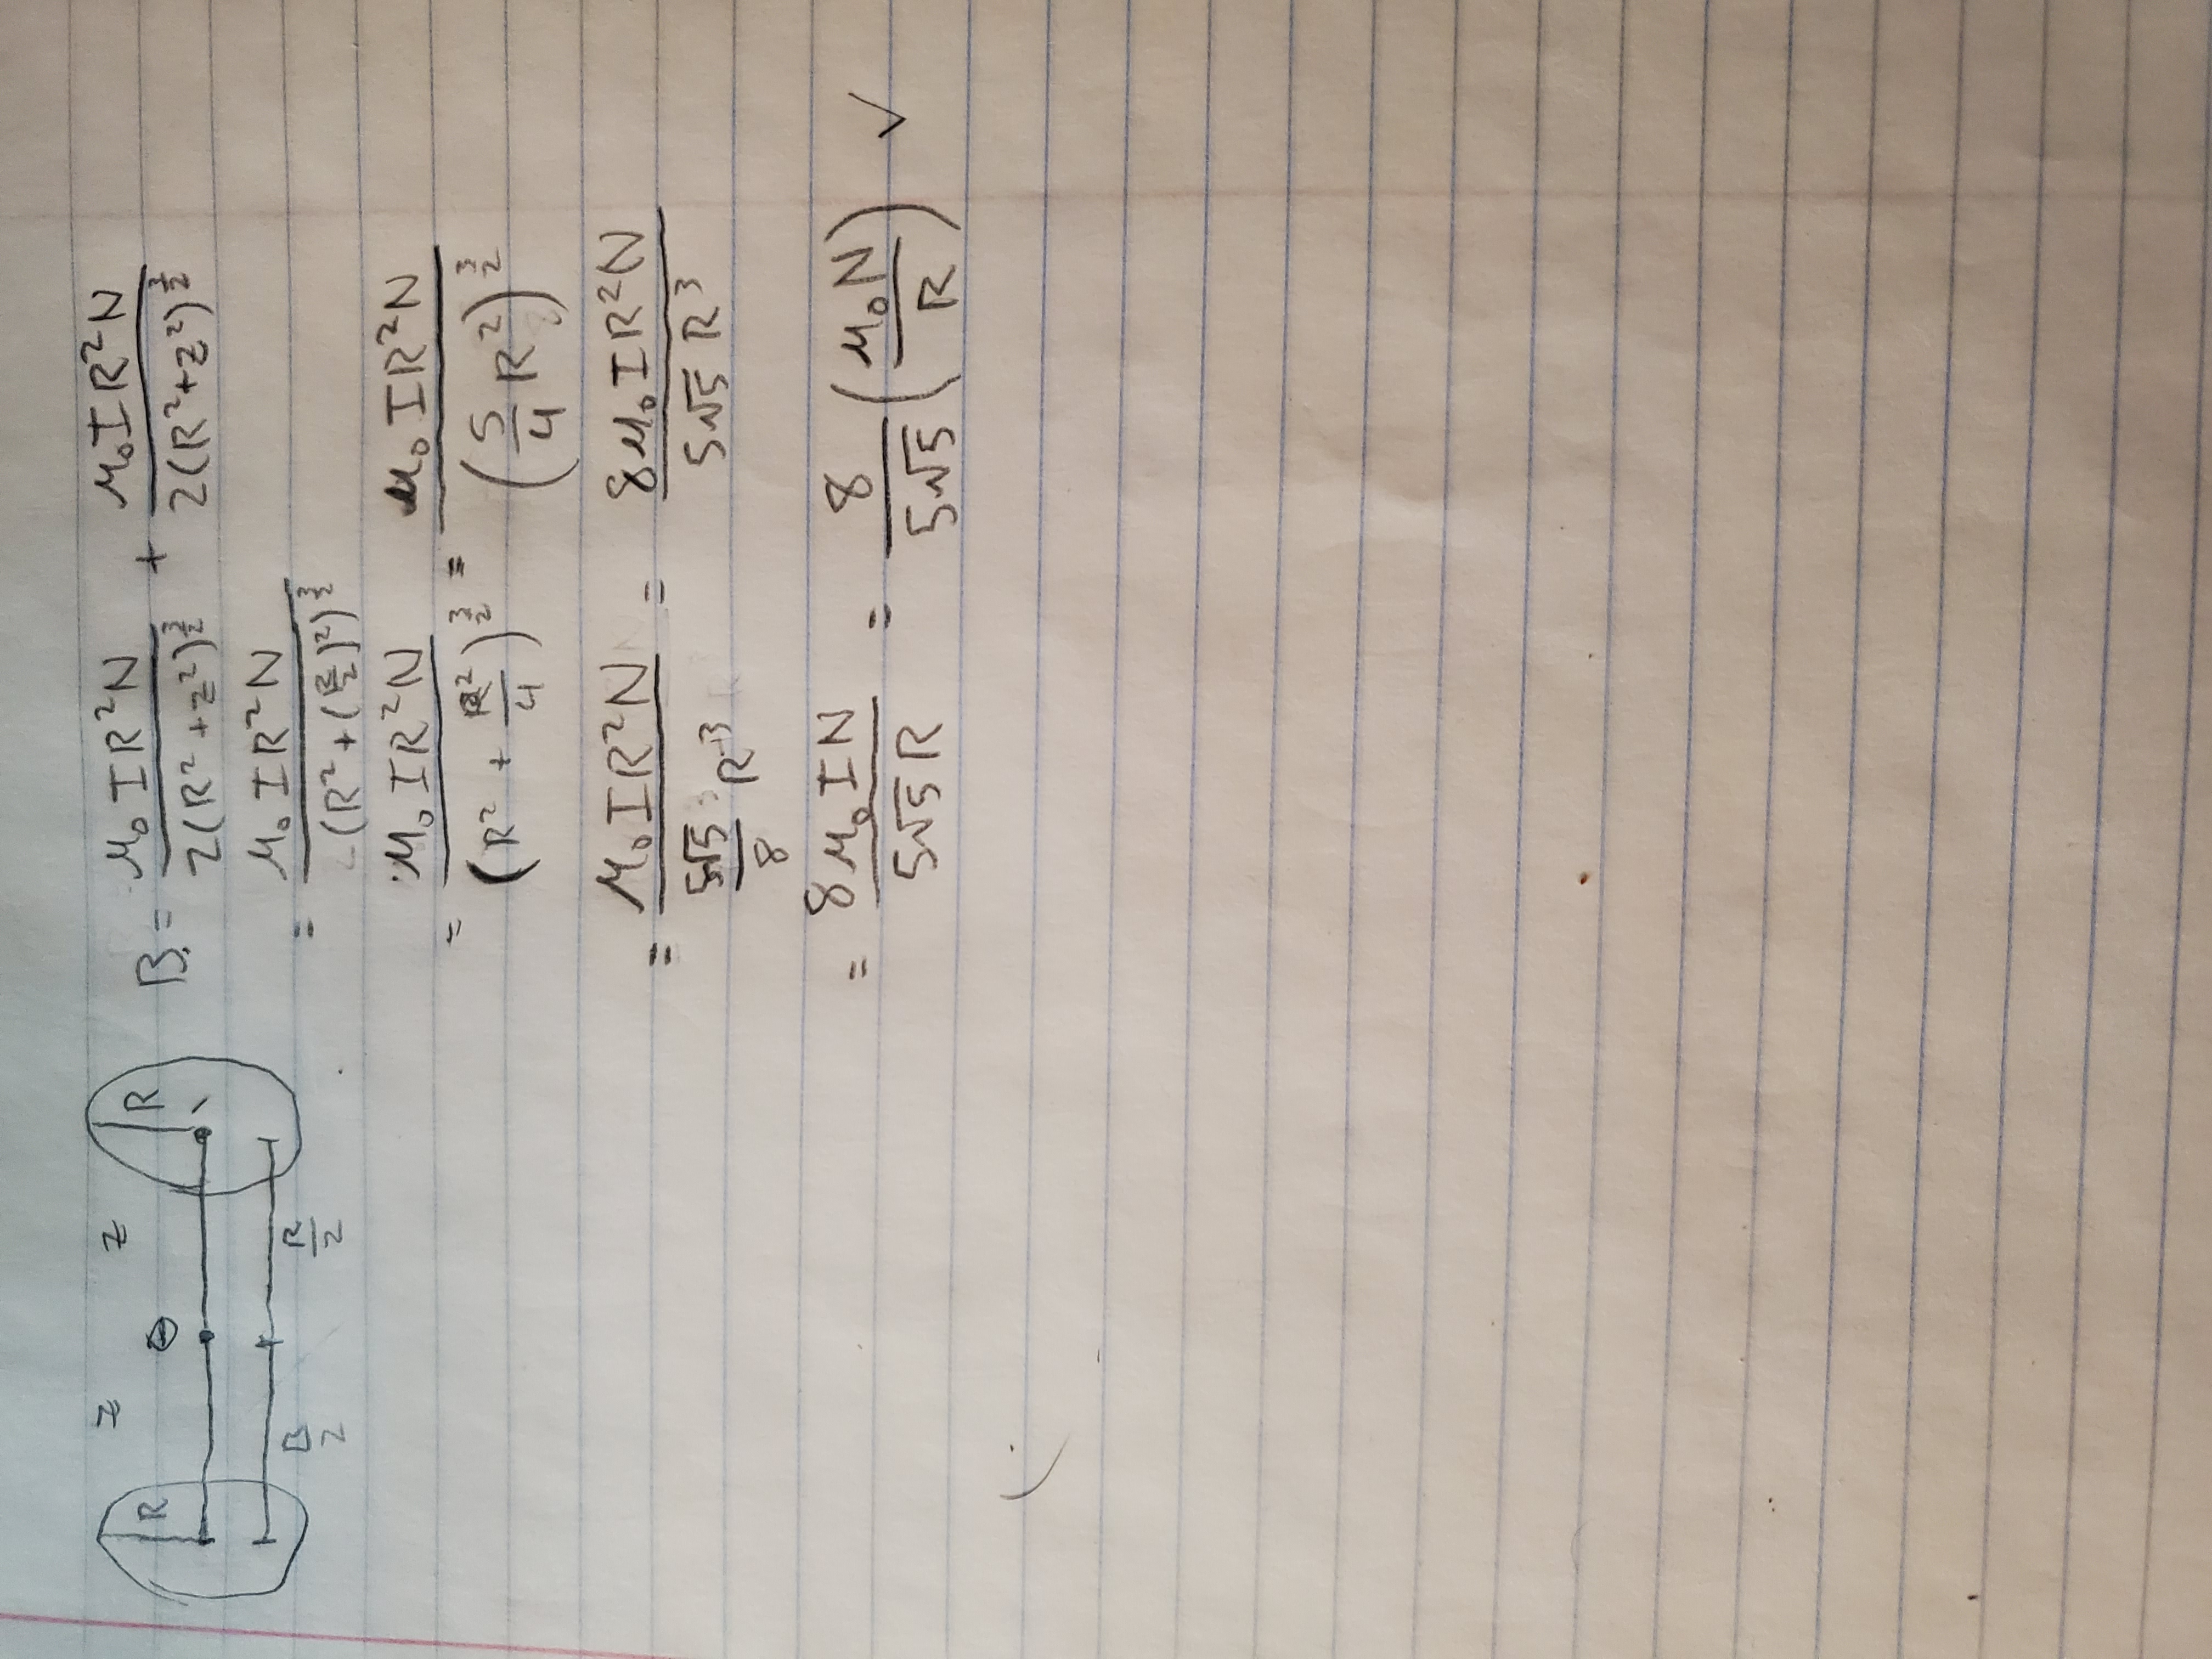 z z
R θ R
R/2 R/2
B = μ₀IR²N / 2(R² + z²)^(3/2) + μ₀IR²N / 2(R² + z²)^(3/2)
= μ₀IR²N / (R² + (R/2)²)^(3/2)
= μ₀IR²N / (R² + R²/4)^(3/2) = μ₀IR²N / (5/4 R²)^(3/2)
= μ₀IR²N / (5√5/8 R³) = 8μ₀IR²N / 5√5 R³
= 8μ₀IN / 5√5 R = 8/5√5 (μ₀N/R) ✓